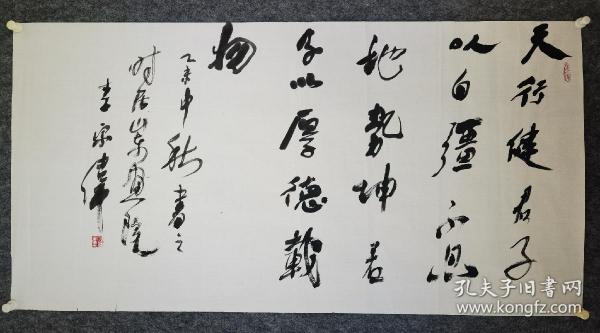 天行健君子
以自彊不息
地勢坤君
子以厚德載
物
乙未中秋書之
時居山東畫院
李
孔夫子旧书网
www.kongfz.com